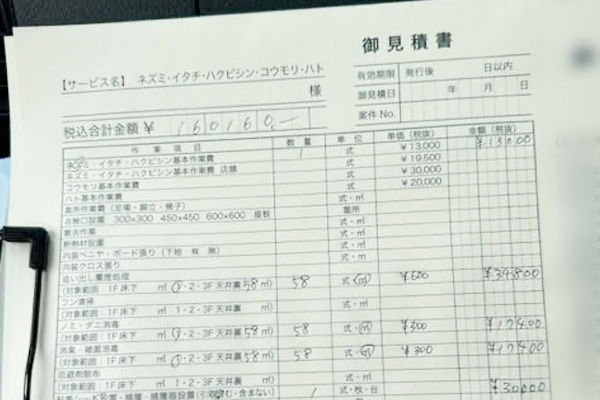 御見積書
【サービス名】 ネズミ・イタチ・ハクビシン・コウモリ・ハト
様
有効期限 発行後 日以内
御見積日 年 月 日
案件No.
税込合計金額 ¥ 160160.-
作業項目 数量 単位 単価(税抜) 金額(税抜)
ネズミ・イタチ・ハクビシン基本作業費 1 式 ¥13,000 ¥13000
ネズミ・イタチ・ハクビシン基本作業費 店舗 式 ¥19,500
コウモリ基本作業費 式 ¥30,000
ハト基本作業費 式 ¥20,000
高所作業費(足場・脚立・梯子) 式・㎡
点検口設置 300×300 450×450 600×600 箇所
撤去作業 式・㎡
断熱材設置 式・㎡
内装ベニヤ・ボード張り(下地 有 無) 式・㎡
内装クロス張り 式・㎡
追い出し燻煙処理
(対象範囲:1F床下 ㎡ 1・2・3F天井裏 58㎡) 58 式・㎡ ¥600 ¥34800
フン清掃
(対象範囲:1F床下 ㎡ 1・2・3F天井裏 ㎡) 式・㎡
ノミ・ダニ消毒
(対象範囲:1F床下 ㎡ 1・2・3F天井裏 58㎡) 58 式・㎡ ¥300 ¥17400
消臭・細菌消毒
(対象範囲:1F床下 ㎡ 1・2・3F天井裏 58㎡) 58 式・㎡ ¥300 ¥17400
忌避剤散布
(対象範囲:1F床下 ㎡ 1・2・3F天井裏 ㎡) 式・㎡
1 式・枚・台 ¥30000